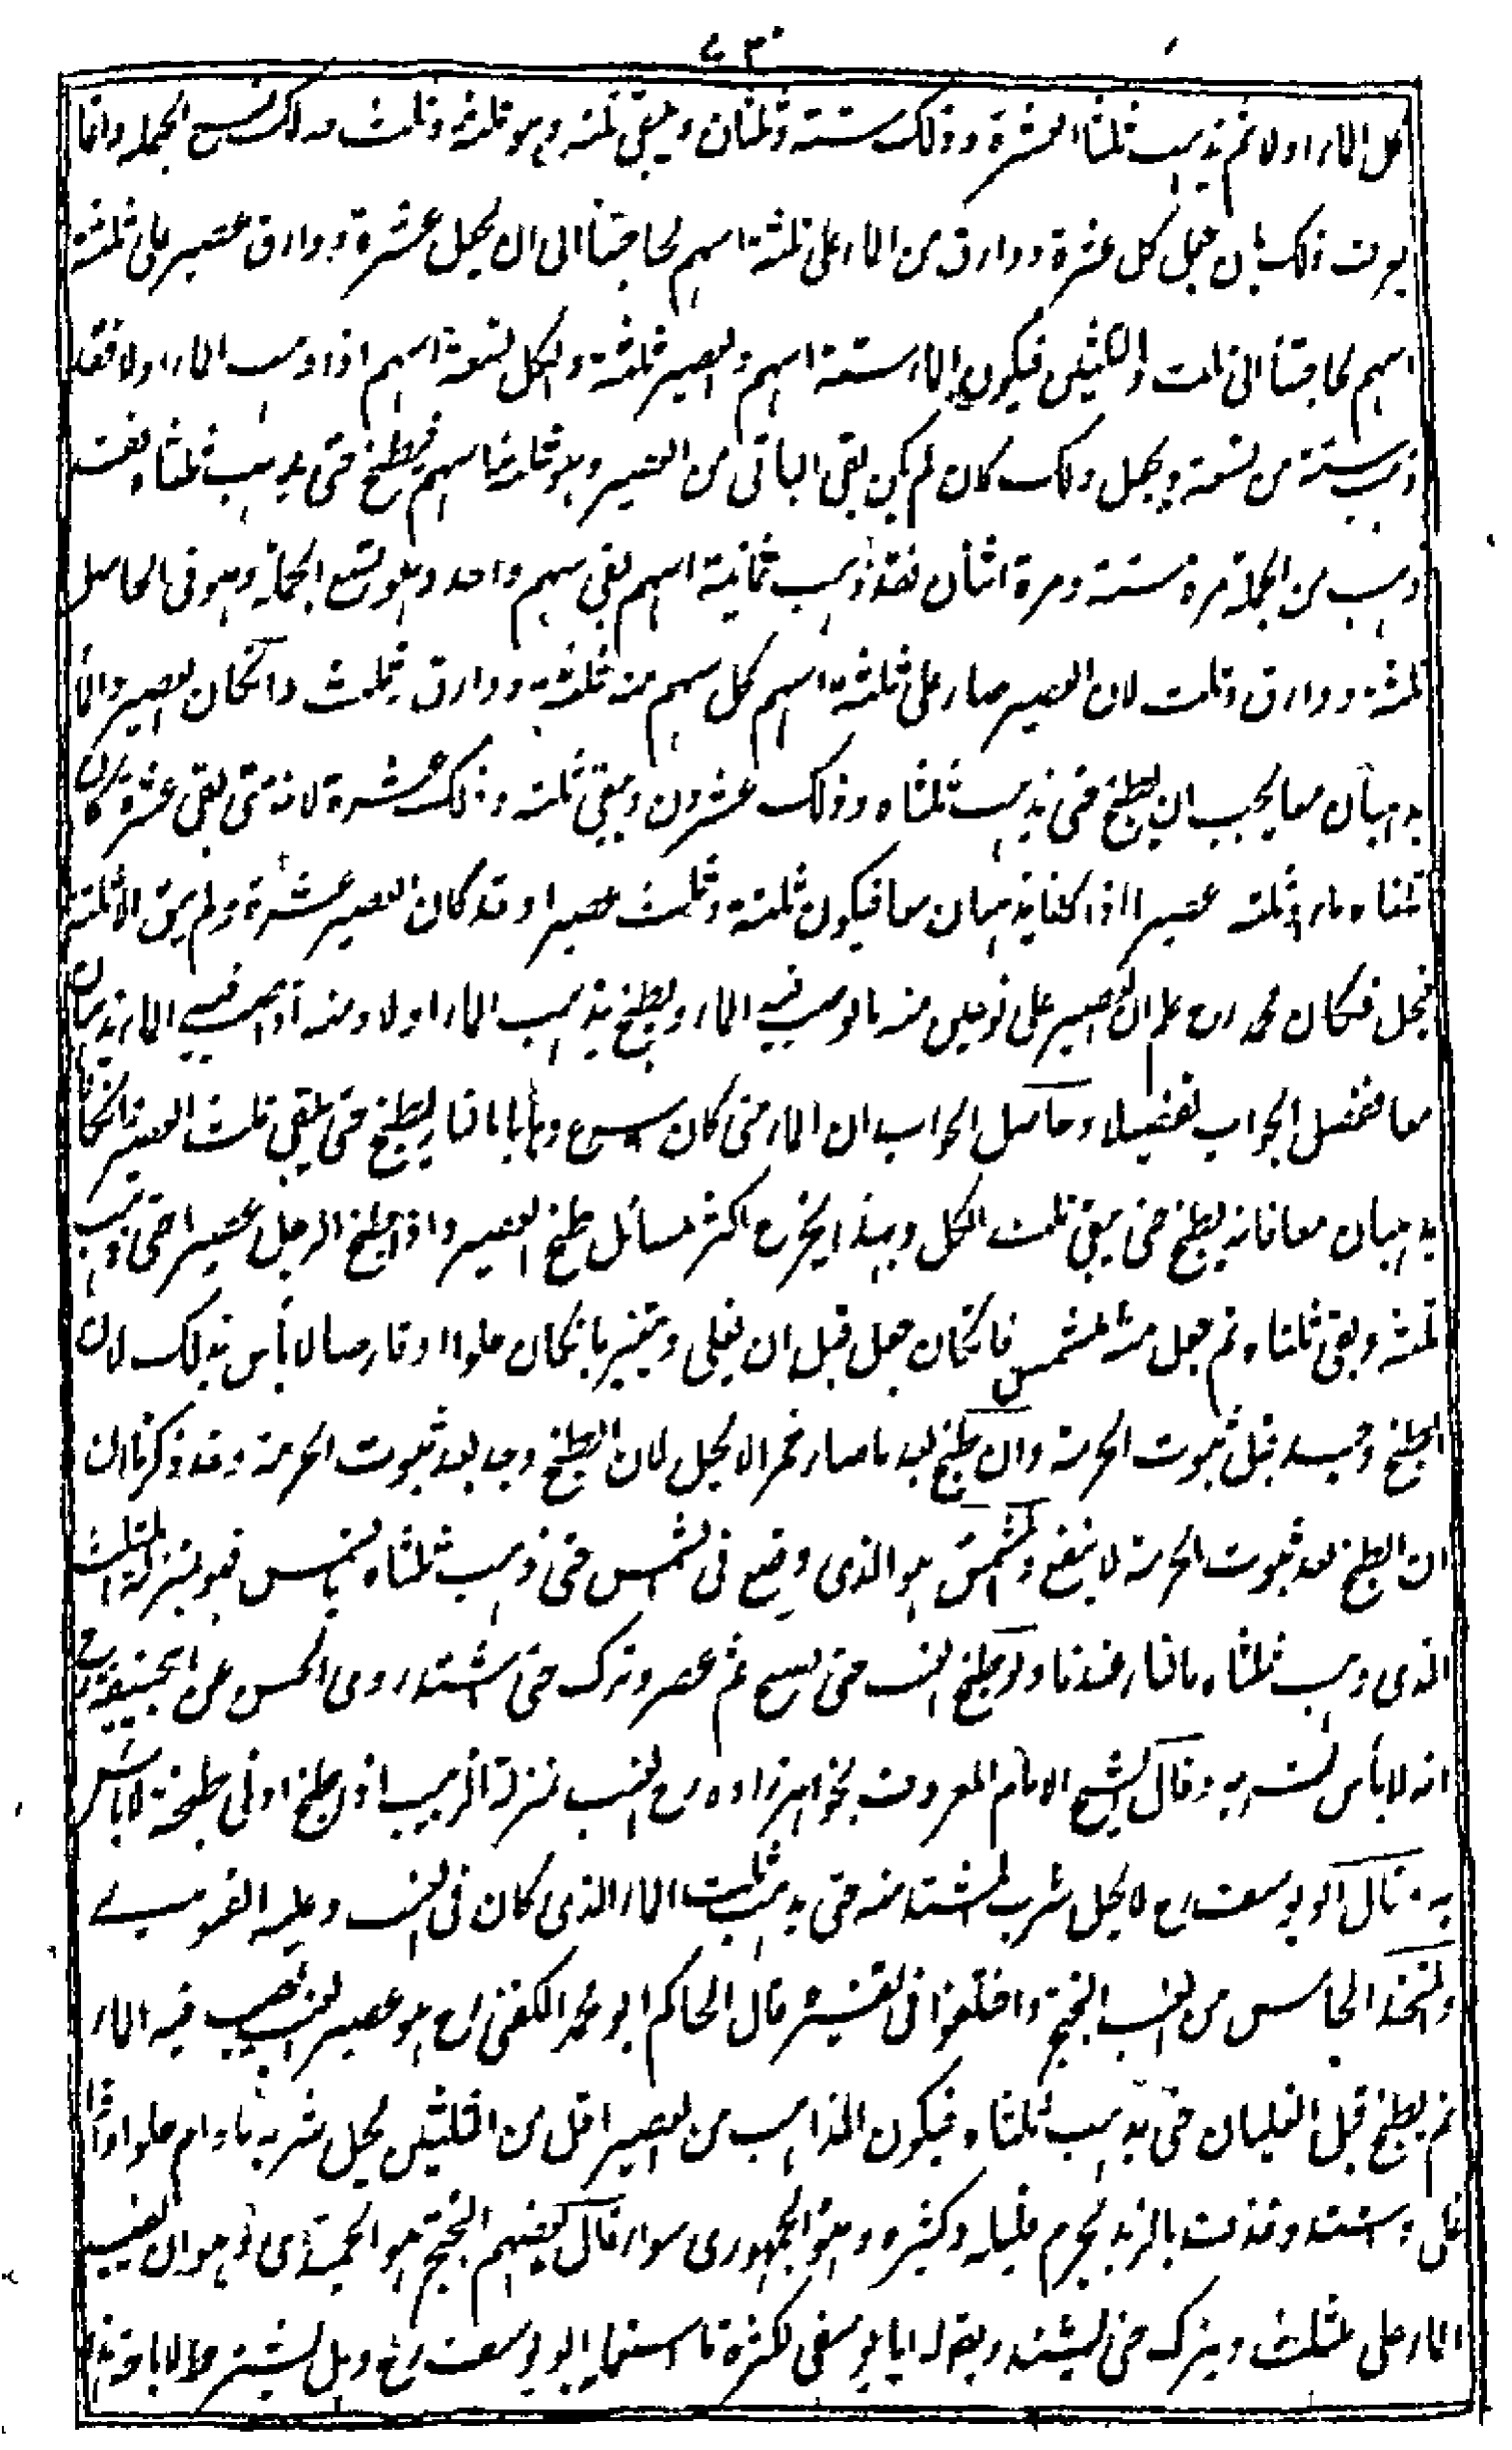 ٧٣٠
كل الماء اولا ثم يذهب ثلثا العشرة وذلك ستة وثلثان ويبقى ثلثه وهو ثلثة وثلث فذلك تسع الجملة وانما
يعرف ذلك بان يجعل كل عشرة دوارق من الماء على ثلثة اسهم لحاجتنا الى ان يجعل عشرة دوارق عصير على ثلثة
اسهم لحاجتنا الى ثلث والثلثين فيكون الماء ستة اسهم والعصير ثلثة والكل تسعة اسهم اذا ذهب الماء اولا فقد
ذهب ستة من تسعة ويجعل ذلك كان لم يكن بقى الباقى من العصير وهو ثلثة اسهم فيطبخ حتى يذهب ثلثاه فقد
ذهب من الجملة مرة ستة ومرة اثنان فقد ذهب ثمانية اسهم بقى سهم واحد وهو تسع الجملة وهو فى الحاصل
ثلثة دوارق وثلث لان العصير صار على ثلثة اسهم كل سهم منه ثلثة دوارق وثلث وان كان العصير والماء
يذهبان معا يجب ان يطبخ حتى يذهب ثلثاه وذلك عشرون ويبقى ثلثه وذلك عشرة لانه متى بقى عشرة كان
ثلثاه ماء وثلثه عصيرا اذا كانا يذهبان معا فيكون ثلثة وثلث عصيرا وقد كان العصير عشرة ولم يبق الا ثلثه
فيحل فكان محمد رح علم ان العصير على نوعين منه ما لو صب فيه الماء ويطبخ يذهب الماء اولا ومنه اذا صب فيه الماء يذهبان
معا ففصل الجواب تفصيلا وحاصل الجواب ان الماء متى كان اسرع ذهابا فانه يطبخ حتى يبقى ثلث العصير فان كانا
يذهبان معا فانه يطبخ حتى يبقى ثلث الكل وبهذا يخرج اكثر مسائل طبخ العصير واذا طبخ الرجل عصيرا حتى ذهب
ثلثه وبقى ثلثاه ثم جعل منه المشمس فان كان جعل قبل ان يغلى ويتغير بان كان حلوا او قارصا لا بأس بذلك لان
الطبخ وجد قبل ثبوت الحرمة وان طبخ بعد ما صار خمرا لا يحل لان الطبخ وجد بعد ثبوت الحرمة وقد ذكرنا ان
ان الطبخ بعد ثبوت الحرمة لا ينفع والمشمس هو الذى وضع فى الشمس حتى ذهب ثلثاه بالشمس فهو بمنزلة المثلث
الذى ذهب ثلثاه بالنار عندنا ولو طبخ العنب حتى نضج ثم عصر وترك حتى اشتد روى الحسن عن ابيحنيفة رح
انه لا بأس بشربه وقال الشيخ الامام المعروف بخواهرزاده رح العنب بمنزلة الزبيب اذا طبخ ادنى طبخة لا بأس
به قال ابو يوسف رح لا يحل شرب المشتد منه حتى يذهب ثلثا الماء الذى كان فى العنب وعليه الفتوى
والمتخذ الخامس من العنب البختج واختلفوا فى تفسيره قال الحاكم ابو محمد الكفنى رح هو عصير العنب يصب فيه الماء
ثم يطبخ قبل الغليان حتى يذهب ثلثاه فيكون الذاهب من العصير اقل من الثلثين يحل شربه ما دام حلوا واذا
غلى واشتد وقذف بالزبد يحرم قليله وكثيره وهو الجمهورى سواء قال بعضهم البختج هو الحميدى وهو ان يصب
الماء على المثلث ويترك حتى يشتد ويقال ابا يوسفى لكثرة ما استعمله ابو يوسف رح وهل يشترط لاباحة هذا